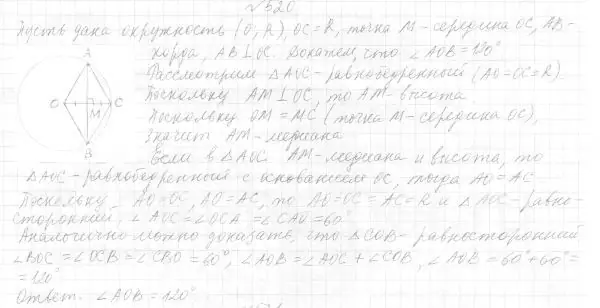 №520
Пусть дана окружность (O, R), OC = R, точка M – середина OC, AB –
хорда, AB ⊥ OC. Докажем, что ∠AOB = 120°
Рассмотрим △AOC – равнобедренный (AO = OC = R).
Поскольку AM ⊥ OC, то AM – высота.
Поскольку OM = MC (точка M – середина OC),
значит AM – медиана
Если в △AOC AM – медиана и высота, то
△AOC – равнобедренный с основанием OC, тогда AO = AC
Поскольку AO = OC, AO = AC, то AO = OC = AC = R и △AOC – равно-
сторонний, ∠AOC = ∠OCA = ∠CAO = 60°
Аналогично можно доказать, что △COB – равносторонний
∠BOC = ∠OCB = ∠CBO = 60°, ∠AOB = ∠AOC + ∠COB, ∠AOB = 60° + 60° =
= 120°
Ответ: ∠AOB = 120°
A
O
C
M
B